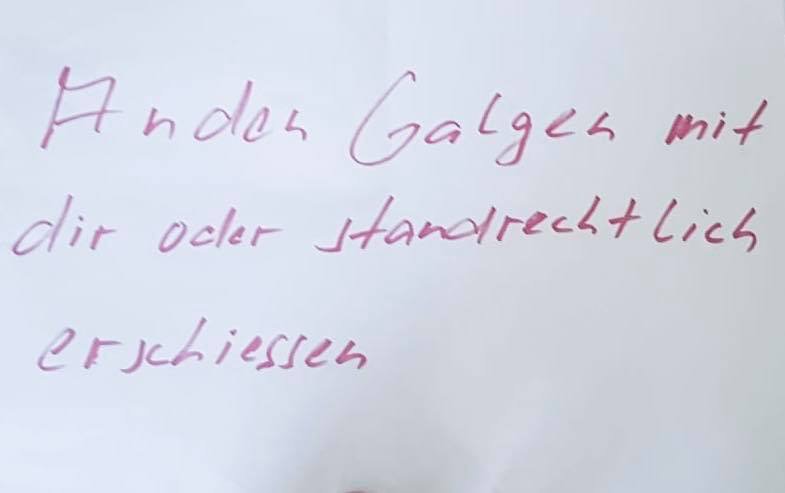 Anden Galgen mit
dir oder standrechtlich
erschiessen